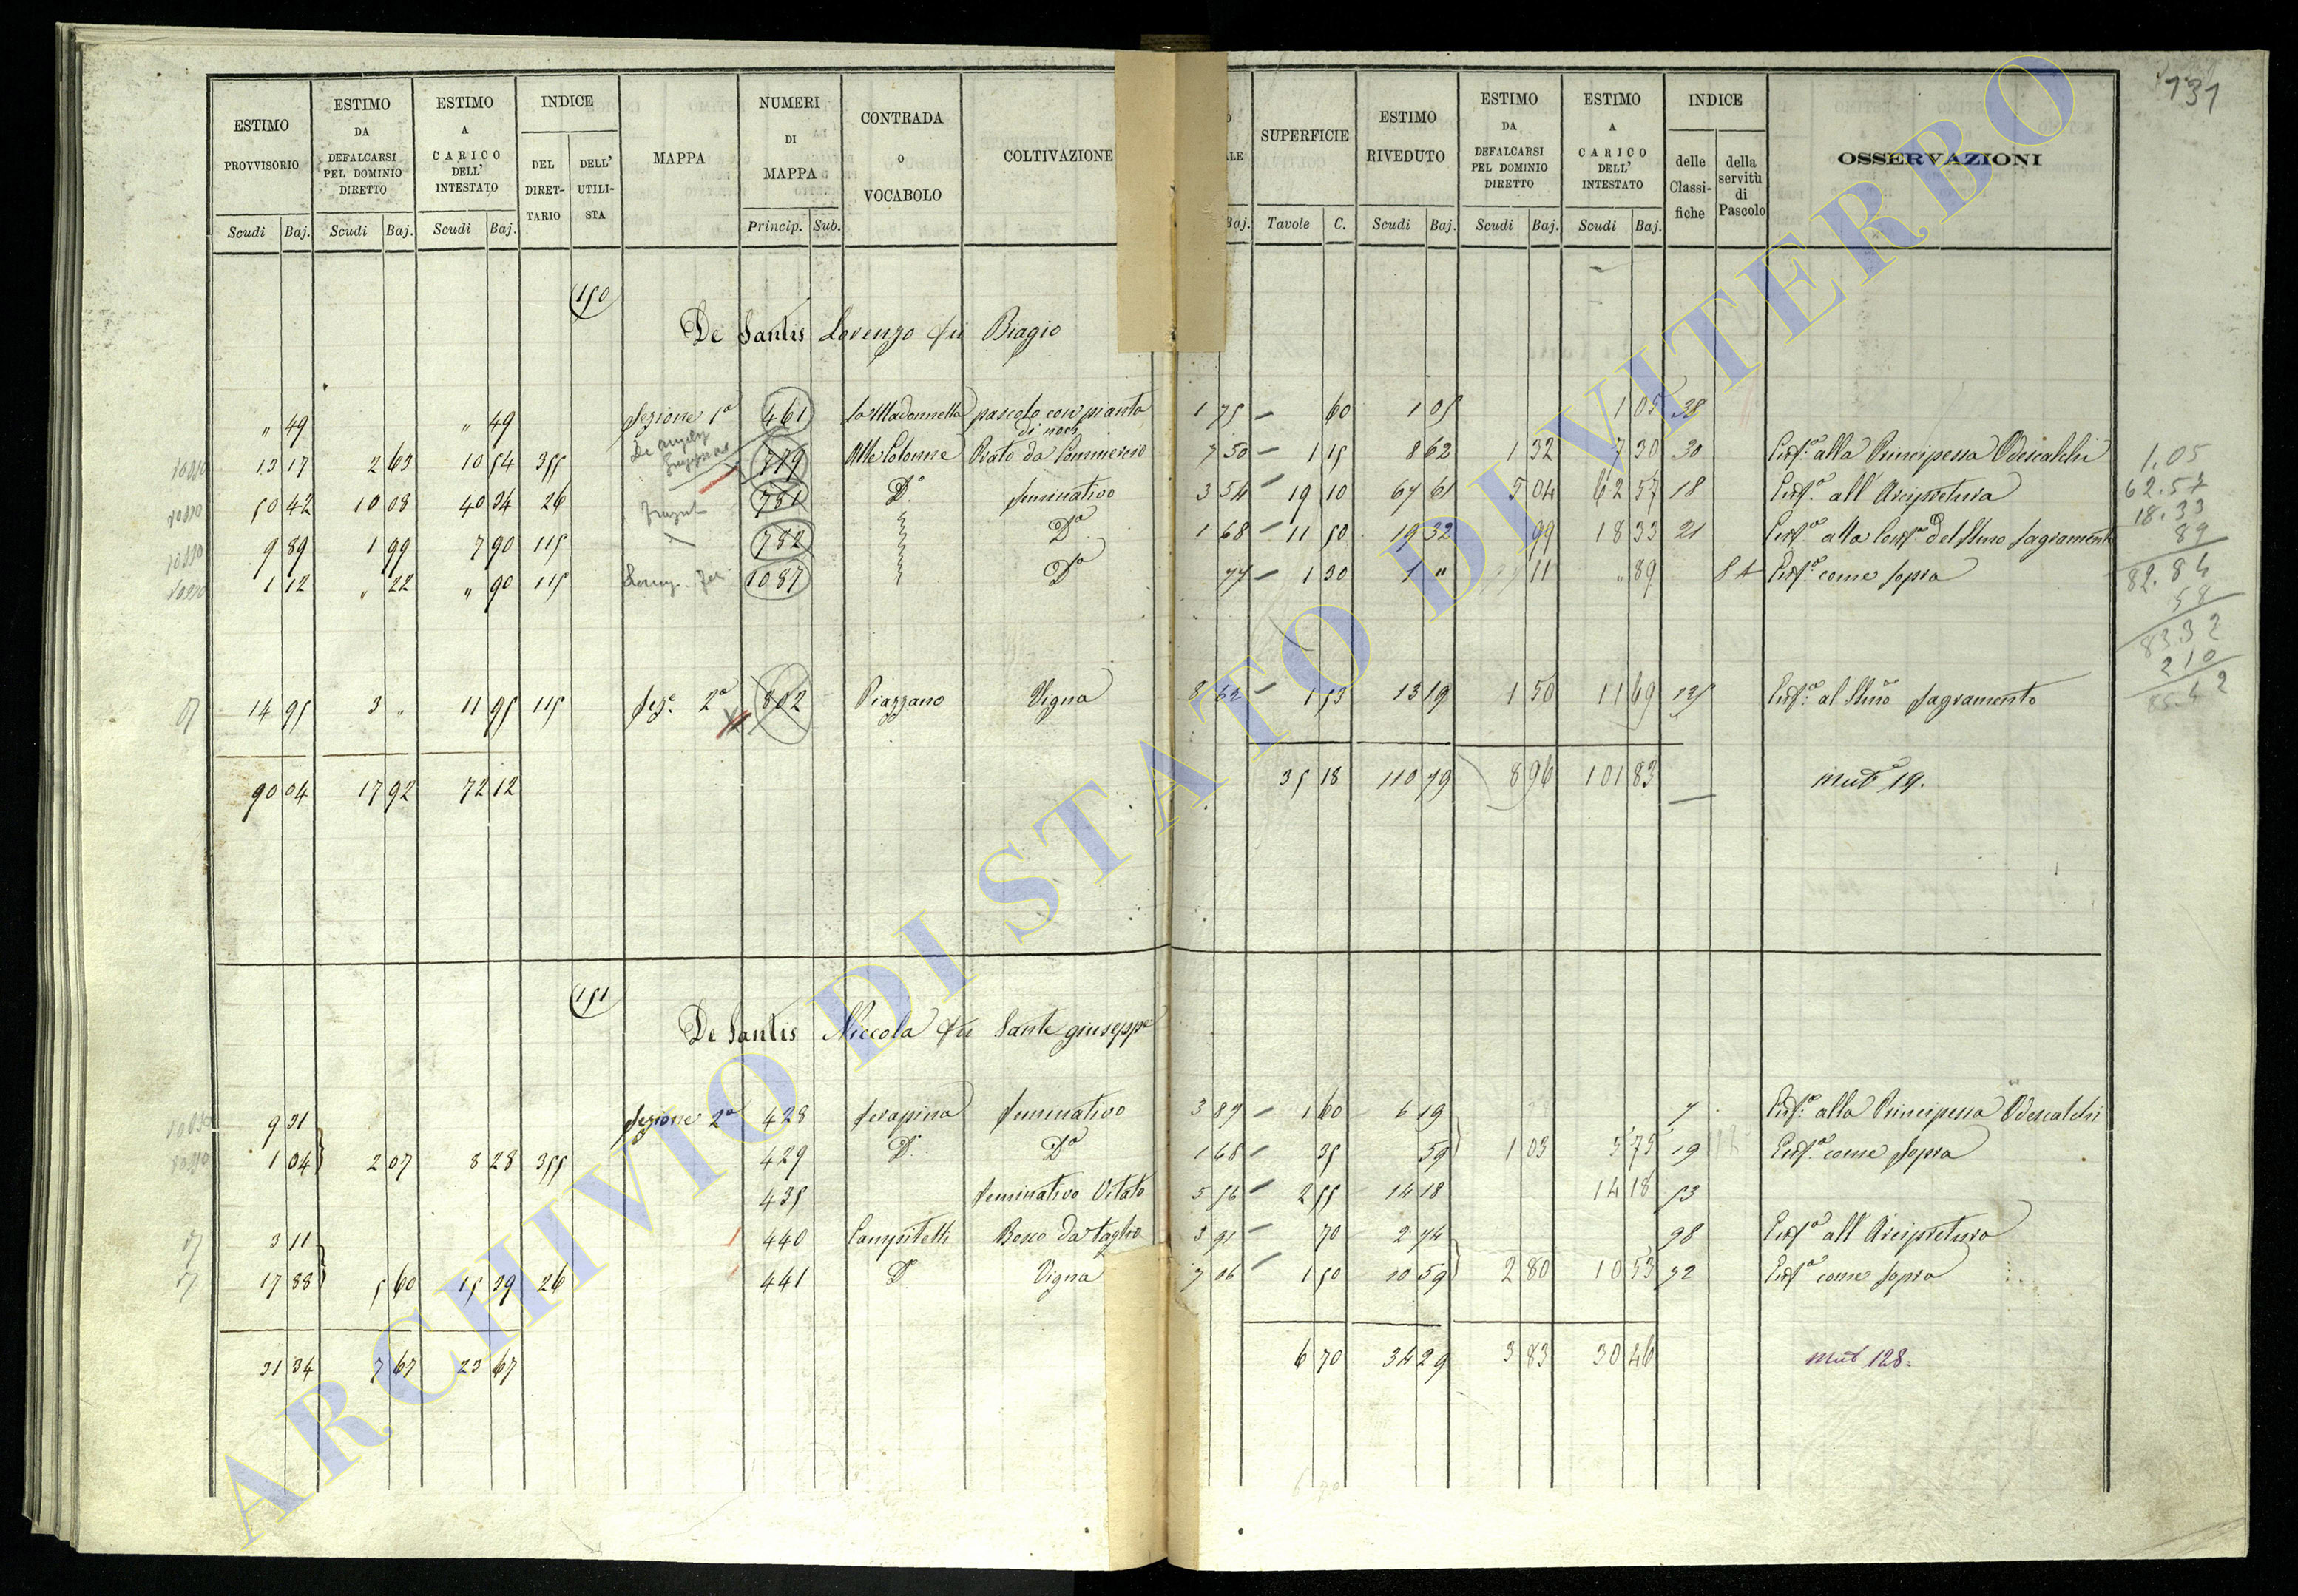 131
ESTIMO PROVVISORIO
ESTIMO DA DEFALCARSI PEL DOMINIO DIRETTO
ESTIMO A CARICO DELL' INTESTATO
INDICE
DEL DIRETTARIO
DELL' UTILISTA
MAPPA
NUMERI DI MAPPA
CONTRADA O VOCABOLO
COLTIVAZIONE
SUPERFICIE
ESTIMO RIVEDUTO
ESTIMO DA DEFALCARSI PEL DOMINIO DIRETTO
ESTIMO A CARICO DELL' INTESTATO
INDICE
delle Classifiche
della servitù di Pascolo
OSSERVAZIONI
Scudi Baj. Scudi Baj. Scudi Baj. Princip. Sub. Baj. Tavole C. Scudi Baj. Scudi Baj. Scudi Baj.
150
De Santis Lorenzo fu Biagio
" 49 " 49 Sezione 1a 461 La Madonnella pascolo con piante di noci 1 75 60 1 05 1 05 38
13 17 2 63 10 54 355 779 Alle Colonne Prato da Commercio 7 50 1 15 8 62 1 32 7 30 30 alla Principessa Odescalchi
50 42 10 08 40 34 26 781 Do Seminativo 3 54 19 10 67 61 5 04 62 57 18 all' Arcipretura
9 89 1 99 7 90 115 782 Do 1 68 11 50 19 32 99 18 33 21 alla del Smo Sagramento
1 12 " 22 " 90 115 1087 Do 77 1 30 1 " 11 " 89 come sopra
14 95 3 " 11 95 115 Seze 2a 802 Piazzano Vigna 8 62 1 53 13 19 1 50 11 69 al Smo Sagramento
90 04 17 92 72 12 35 18 110 79 8 96 101 83 Muta 19.
1.05
62.57
18.33
89
82.84
58
83 32
2 10
85.42
151
De Santis Niccola fu Sante giuseppe
9 31 Sezione 2a 428 Serapina Seminativo 3 87 1 60 6 19 7 alla Principessa Odescalchi
1 04 2 07 8 28 355 429 Do Do 1 68 35 59 1 03 5 75 19 come sopra
435 Seminativo Vitato 5 56 2 55 14 18 14 18 53
3 11 440 Campitelli Bosco da taglio 3 91 70 2 74 98 all' Arcipretura
17 88 5 60 15 39 26 441 Do Vigna 7 06 1 50 10 59 2 80 10 53 72 come sopra
31 34 7 67 23 67 6 70 34 29 3 83 30 46 Mut 128.
ARCHIVIO DI STATO DI VITERBO